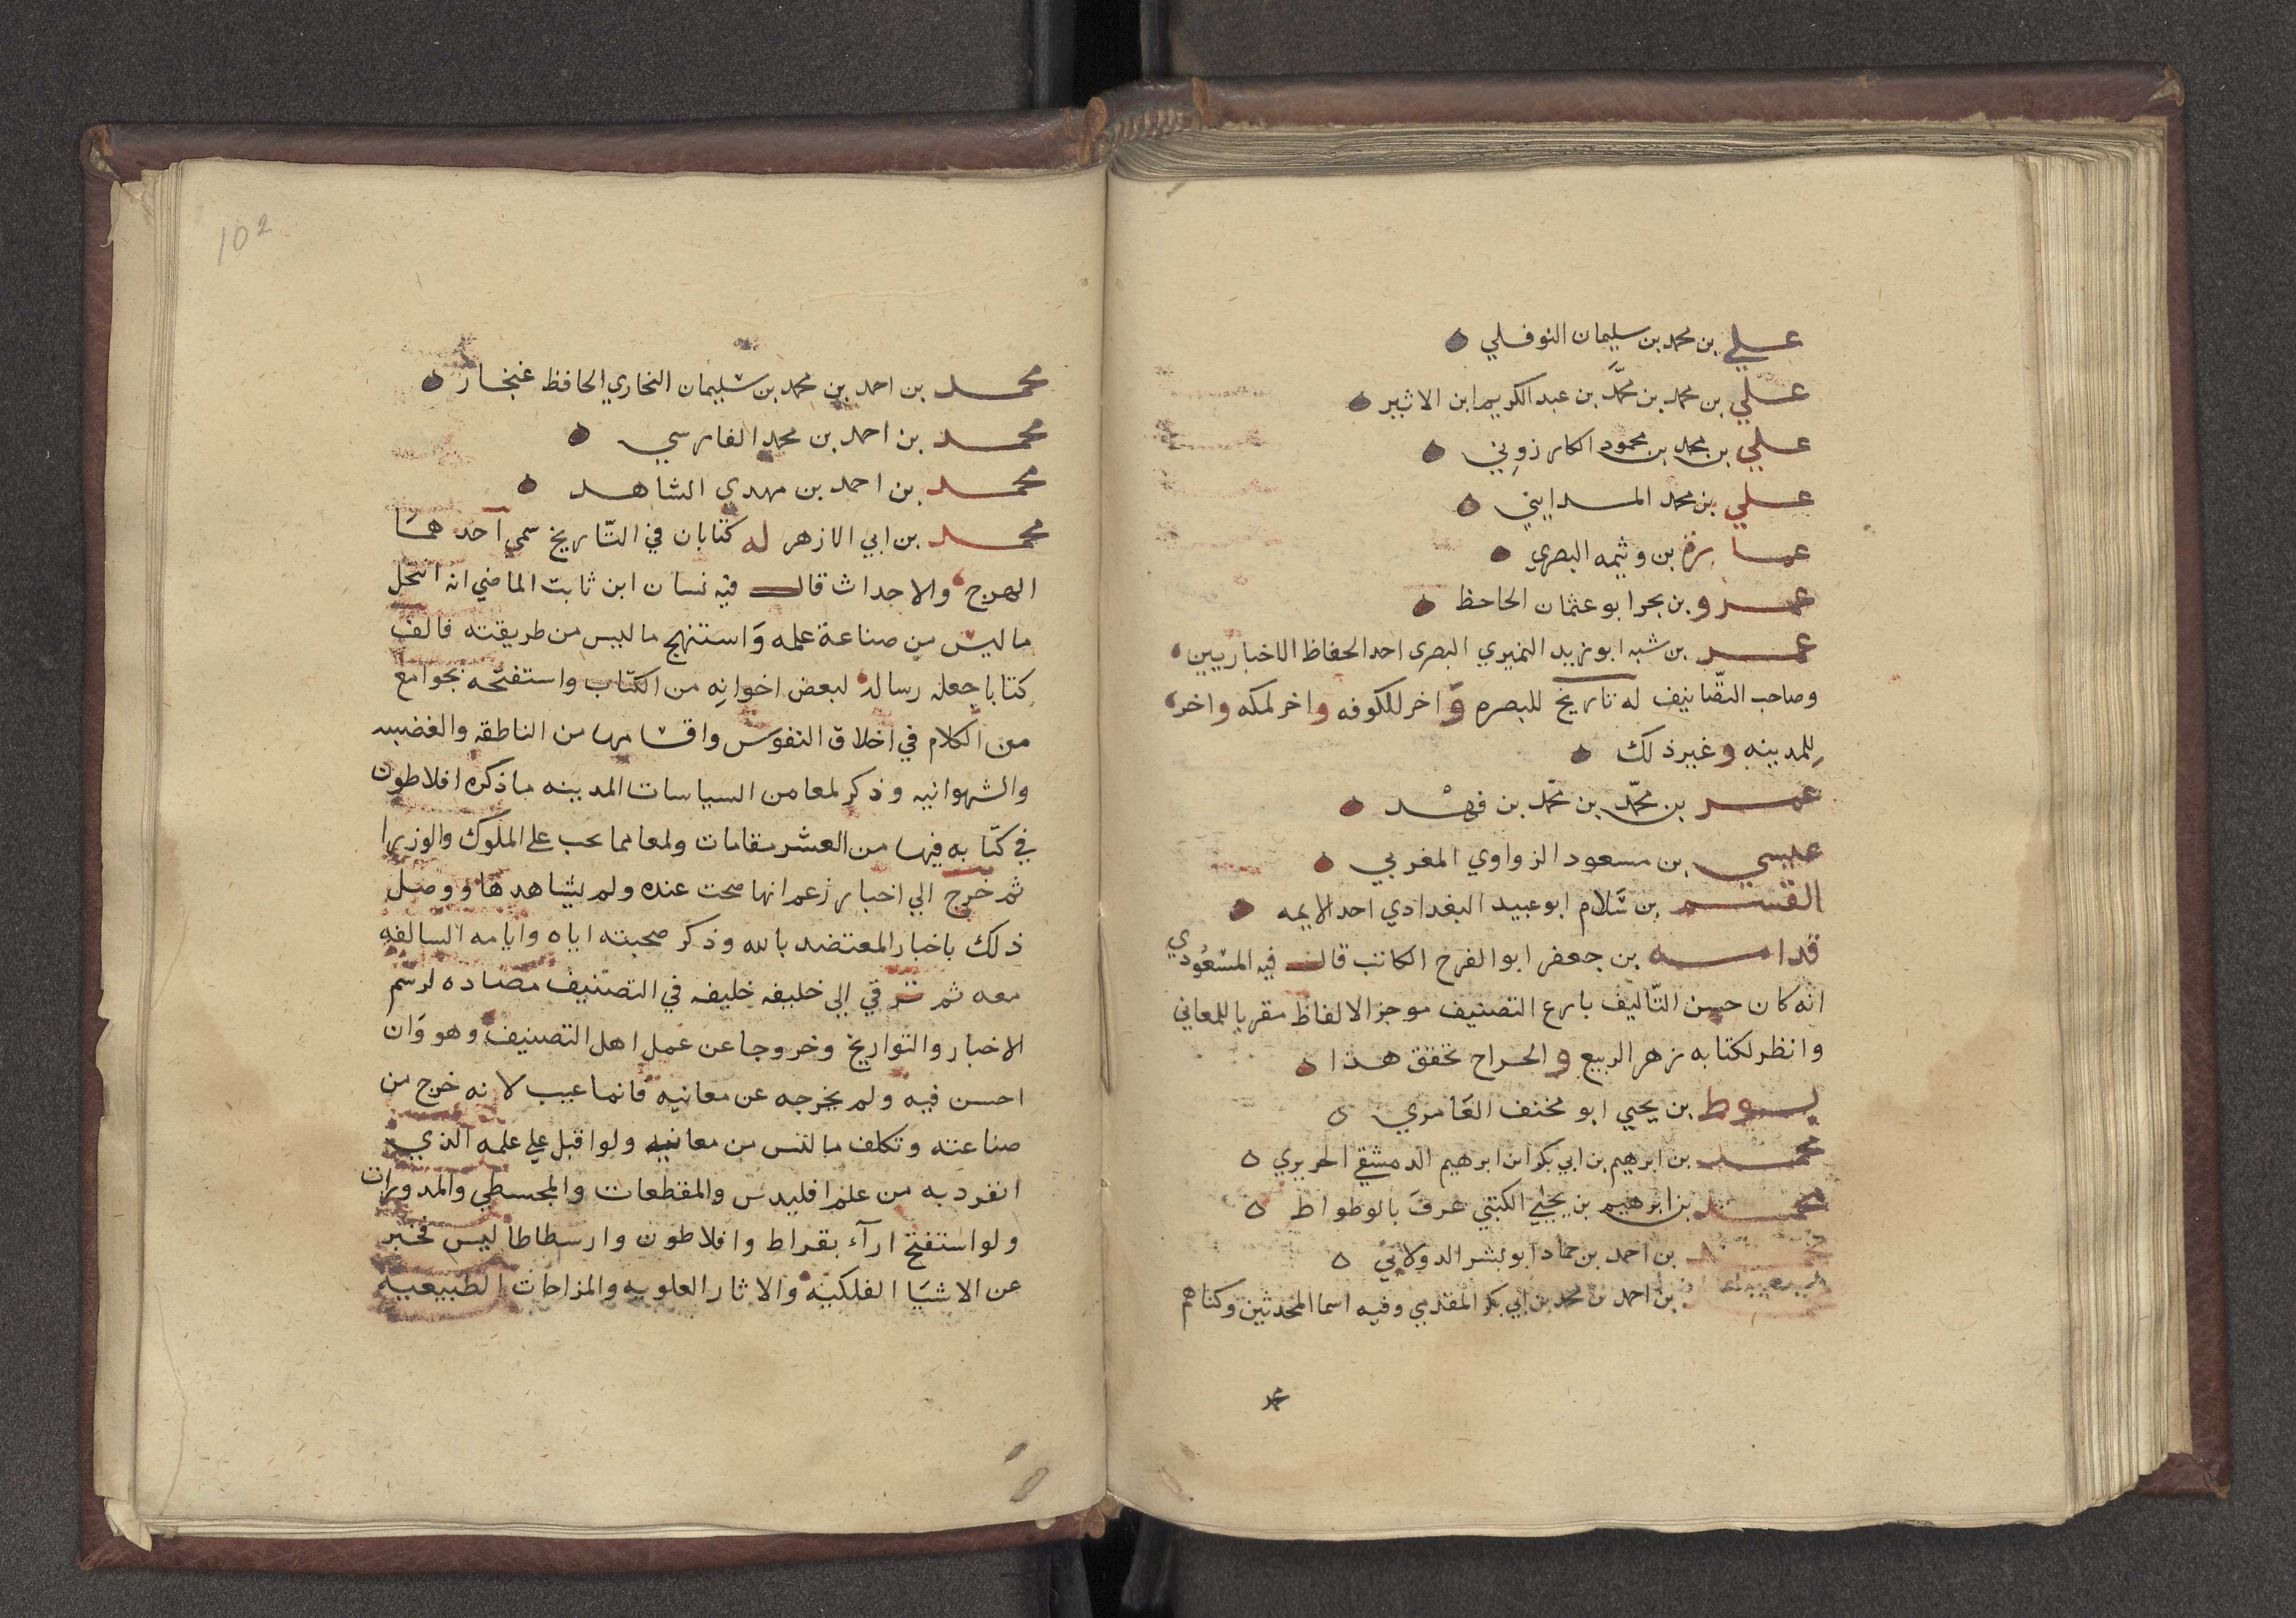 علي بن محمد بن سليمان النوفلي
علي بن محمد بن محمد بن عبد الكريم ابن الاثير
علي بن محمد بن محمود الكازروني
علي بن محمد المدايني
عمارة بن وثيمه البصري
عمرو بن بحر ابو عثمان الجاحظ
عمر بن شبه ابو زيد النميري البصرى احد الحفاظ الاخباريين
وصاحب التّصانيف له تاريخ للبصره وَاخر للكوفه واخر لمكه واخر
للمدينه وغير ذلك
عمر بن محمّد بن محمّد بن فهْد
عيسي بن مسعود الزواوي المغربي
القسم بن سَلام ابو عبيد البغدادي احد الايمه
قدامه بن جعفر ابو الفرج الكاتب قال فيه المسعُودي
انه كان حسن التّاليف بارع التصنيف موجز الالفاظ مقربا للمعاني
وانظر لكتابه زهر الربيع والخراج تحقق هذا
لوط بن يحيي ابو مخنف العَامري
محمد بن ابرهيم بن ابي بكر ابن ابرهيم الدمشقي الجزيري
محمد بن ابرهيم بن يحيي الكتبي عرفَ بالوطواط
محمد بن احمد بن حماد ابو بشر الدولابي
محمد بن احمد بن محمد بن ابي بكر المقدمي وفيه اسما المحدثين وكناهم
محمد
102
محمد بن احمد بن محمد بن سليمان البخاري الحافظ غنجار
محمد بن احمد بن محمد الفارسي
محمد بن احمد بن مهدي الشاهد
محمد بن ابي الازهر له كتابان في التّاريخ سمي احدهمَا
الهرج والاحداث قال فيه نسان ابن ثابت الماضي انه انتحل
ما ليس من صناعة علمه وَاستنهج ما ليس من طريقته فالف
كتابا جعله رسالة لبعض اخوانِه من الكتّاب واستفتحه بجوامع
من الكلام في اخلاق النفوس واقسامها من الناطقه والغضبيه
والشهوانيه وذكر لمعا من السياسات المدينه ما ذكره افلاطون
في كتابه فيها من العشر مقامات ولمعا مما يجب علي الملوك والوزرا
ثم خرج الي اخبار زعم انها صحت عنده ولم يشاهدها ووصل
ذلك باخبار المعتضد بالله وذكر صحبته اياه وايامه السالفه
معه ثم ترقي الي خليفه خليفه في التصنيف مضاده لرسم
الاخبار والتواريخ وخروجا عن عمل اهل التصنيف وهو وَان
احسن فيه ولم يخرجه عن معانيه فانما عيب لانه خرج من
صناعته وتكلف ما ليس من معانيه ولو اقبل علي علمه الذي
انفرد به من علم اقليدس والمقطعات والمجسطي والمدورات
ولو استفتح ارآء بقراط وافلاطون وارسطاطاليس فخبر
عن الاشيَا الفلكيه والاثار العلويه والمزاجات الطبيعيه